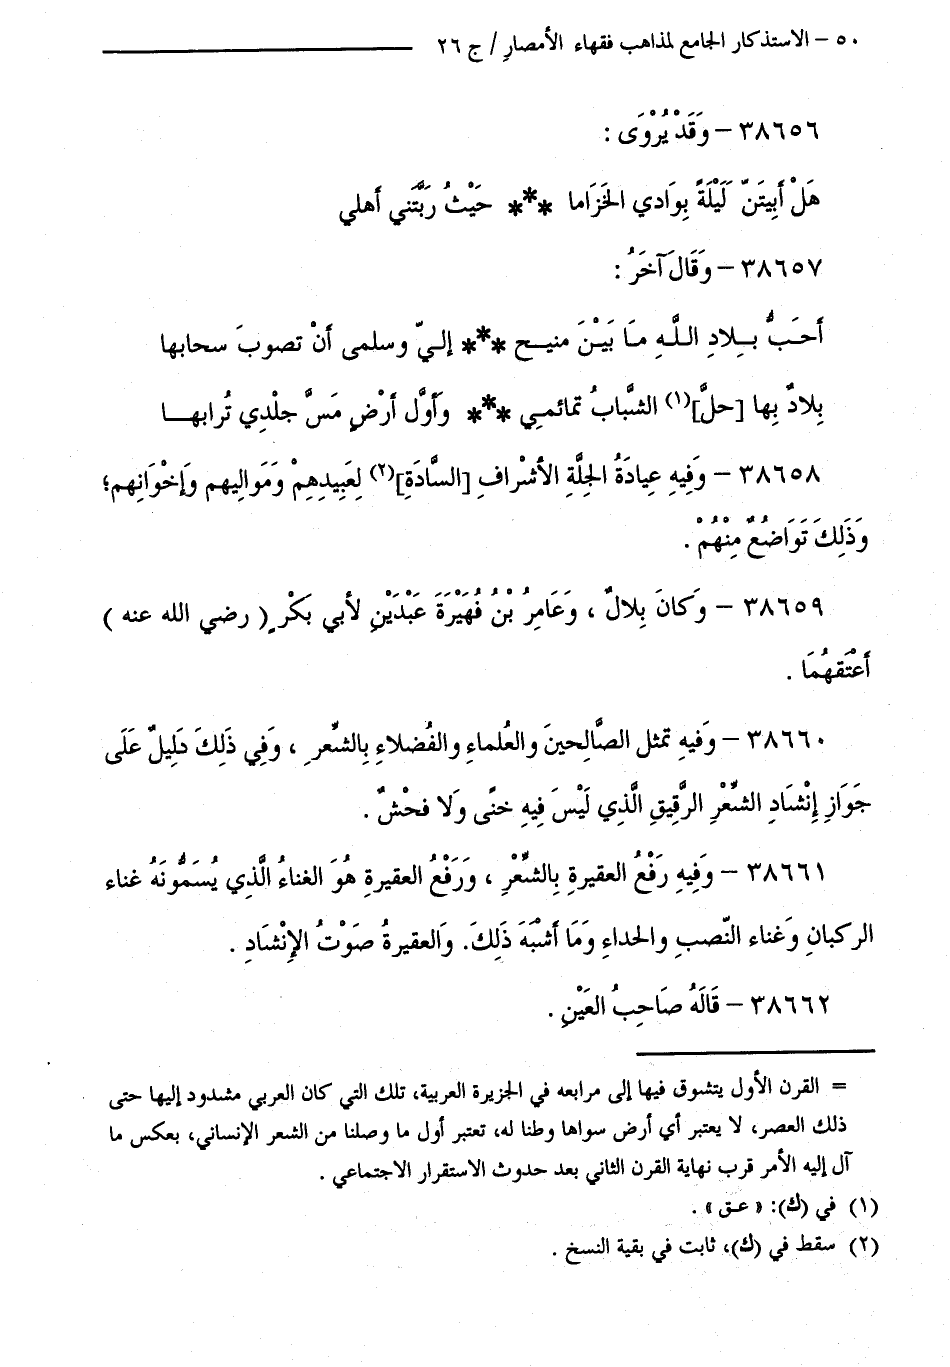 ٥٠ – الاستذكار الجامع لمذاهب فقهاء الأمصارِ / ج ٢٦
٣٨٦٥٦ – وَقَدْ يُرْوَى :
هَلْ أَبِيتَنَّ لَيْلَةً بِوَادي الخَزَاما *** حَيْثُ رَبَّتَني أهلي
٣٨٦٥٧ – وَقَالَ آخَرُ :
أحَبُّ بـلادِ اللـهِ مـَا بَيْنَ منيـح *** إلـيّ وسلمى أنْ تصوبَ سحابها
بِلادٌ بِها [حلَّ](١) الشَّبابُ تمائمـِي *** وَأوَّل أرْضٍ مَسَّ جلْدِي تُرابهـا
٣٨٦٥٨ – وَفِيهِ عِيادَةُ الجِلَّةِ الأشْرافِ [السَّادَةِ](٢) لِعَبِيدِهِمْ وَمَوَالِيهم وَإخْوَانِهم؛
وَذَلِكَ تَوَاضُعٌ مِنْهُمْ .
٣٨٦٥٩ – وَكانَ بِلالٌ ، وَعَامِرُ بْنُ فُهَيْرَةَ عَبْدَيْنِ لأبي بَكْرٍ ( رضي الله عنه )
أعْتَقهُمَا .
٣٨٦٦٠ – وَفيهِ تمثل الصَّالِحينَ والعُلماءِ والفُضلاءِ بِالشِّعرِ ، وَفِي ذَلِكَ دَلِيلٌ عَلَى
جَوَازِ إنْشَادِ الشِّعْرِ الرَّقِيقِ الَّذِي لَيْسَ فِيهِ خنًى وَلا فحْشٌ .
٣٨٦٦١ – وَفِيهِ رَفْعُ العقيرةِ بِالشِّعْرِ ، وَرَفْعُ العقيرةِ هُوَ الغناءُ الَّذِي يُسَمُّونَهُ غناء
الركبانِ وَغناء النّصبِ والحداءِ وَمَا أشْبَهَ ذَلِكَ. وَالعقيرةُ صَوْتُ الإنْشَادِ .
٣٨٦٦٢ – قَالَهُ صَاحِبُ العَيْنِ .
= القرن الأول يتشوق فيها إلى مرابعه في الجزيرة العربية، تلك التي كان العربي مشدود إليها حتى
ذلك العصر، لا يعتبر أي أرض سواها وطنا له، تعتبر أول ما وصلنا من الشعر الإنساني، بعكس ما
آل إليه الأمر قرب نهاية القرن الثاني بعد حدوث الاستقرار الاجتماعي .
(١) في (ك): « عـق » .
(٢) سقط في (ك)، ثابت في بقية النسخ .